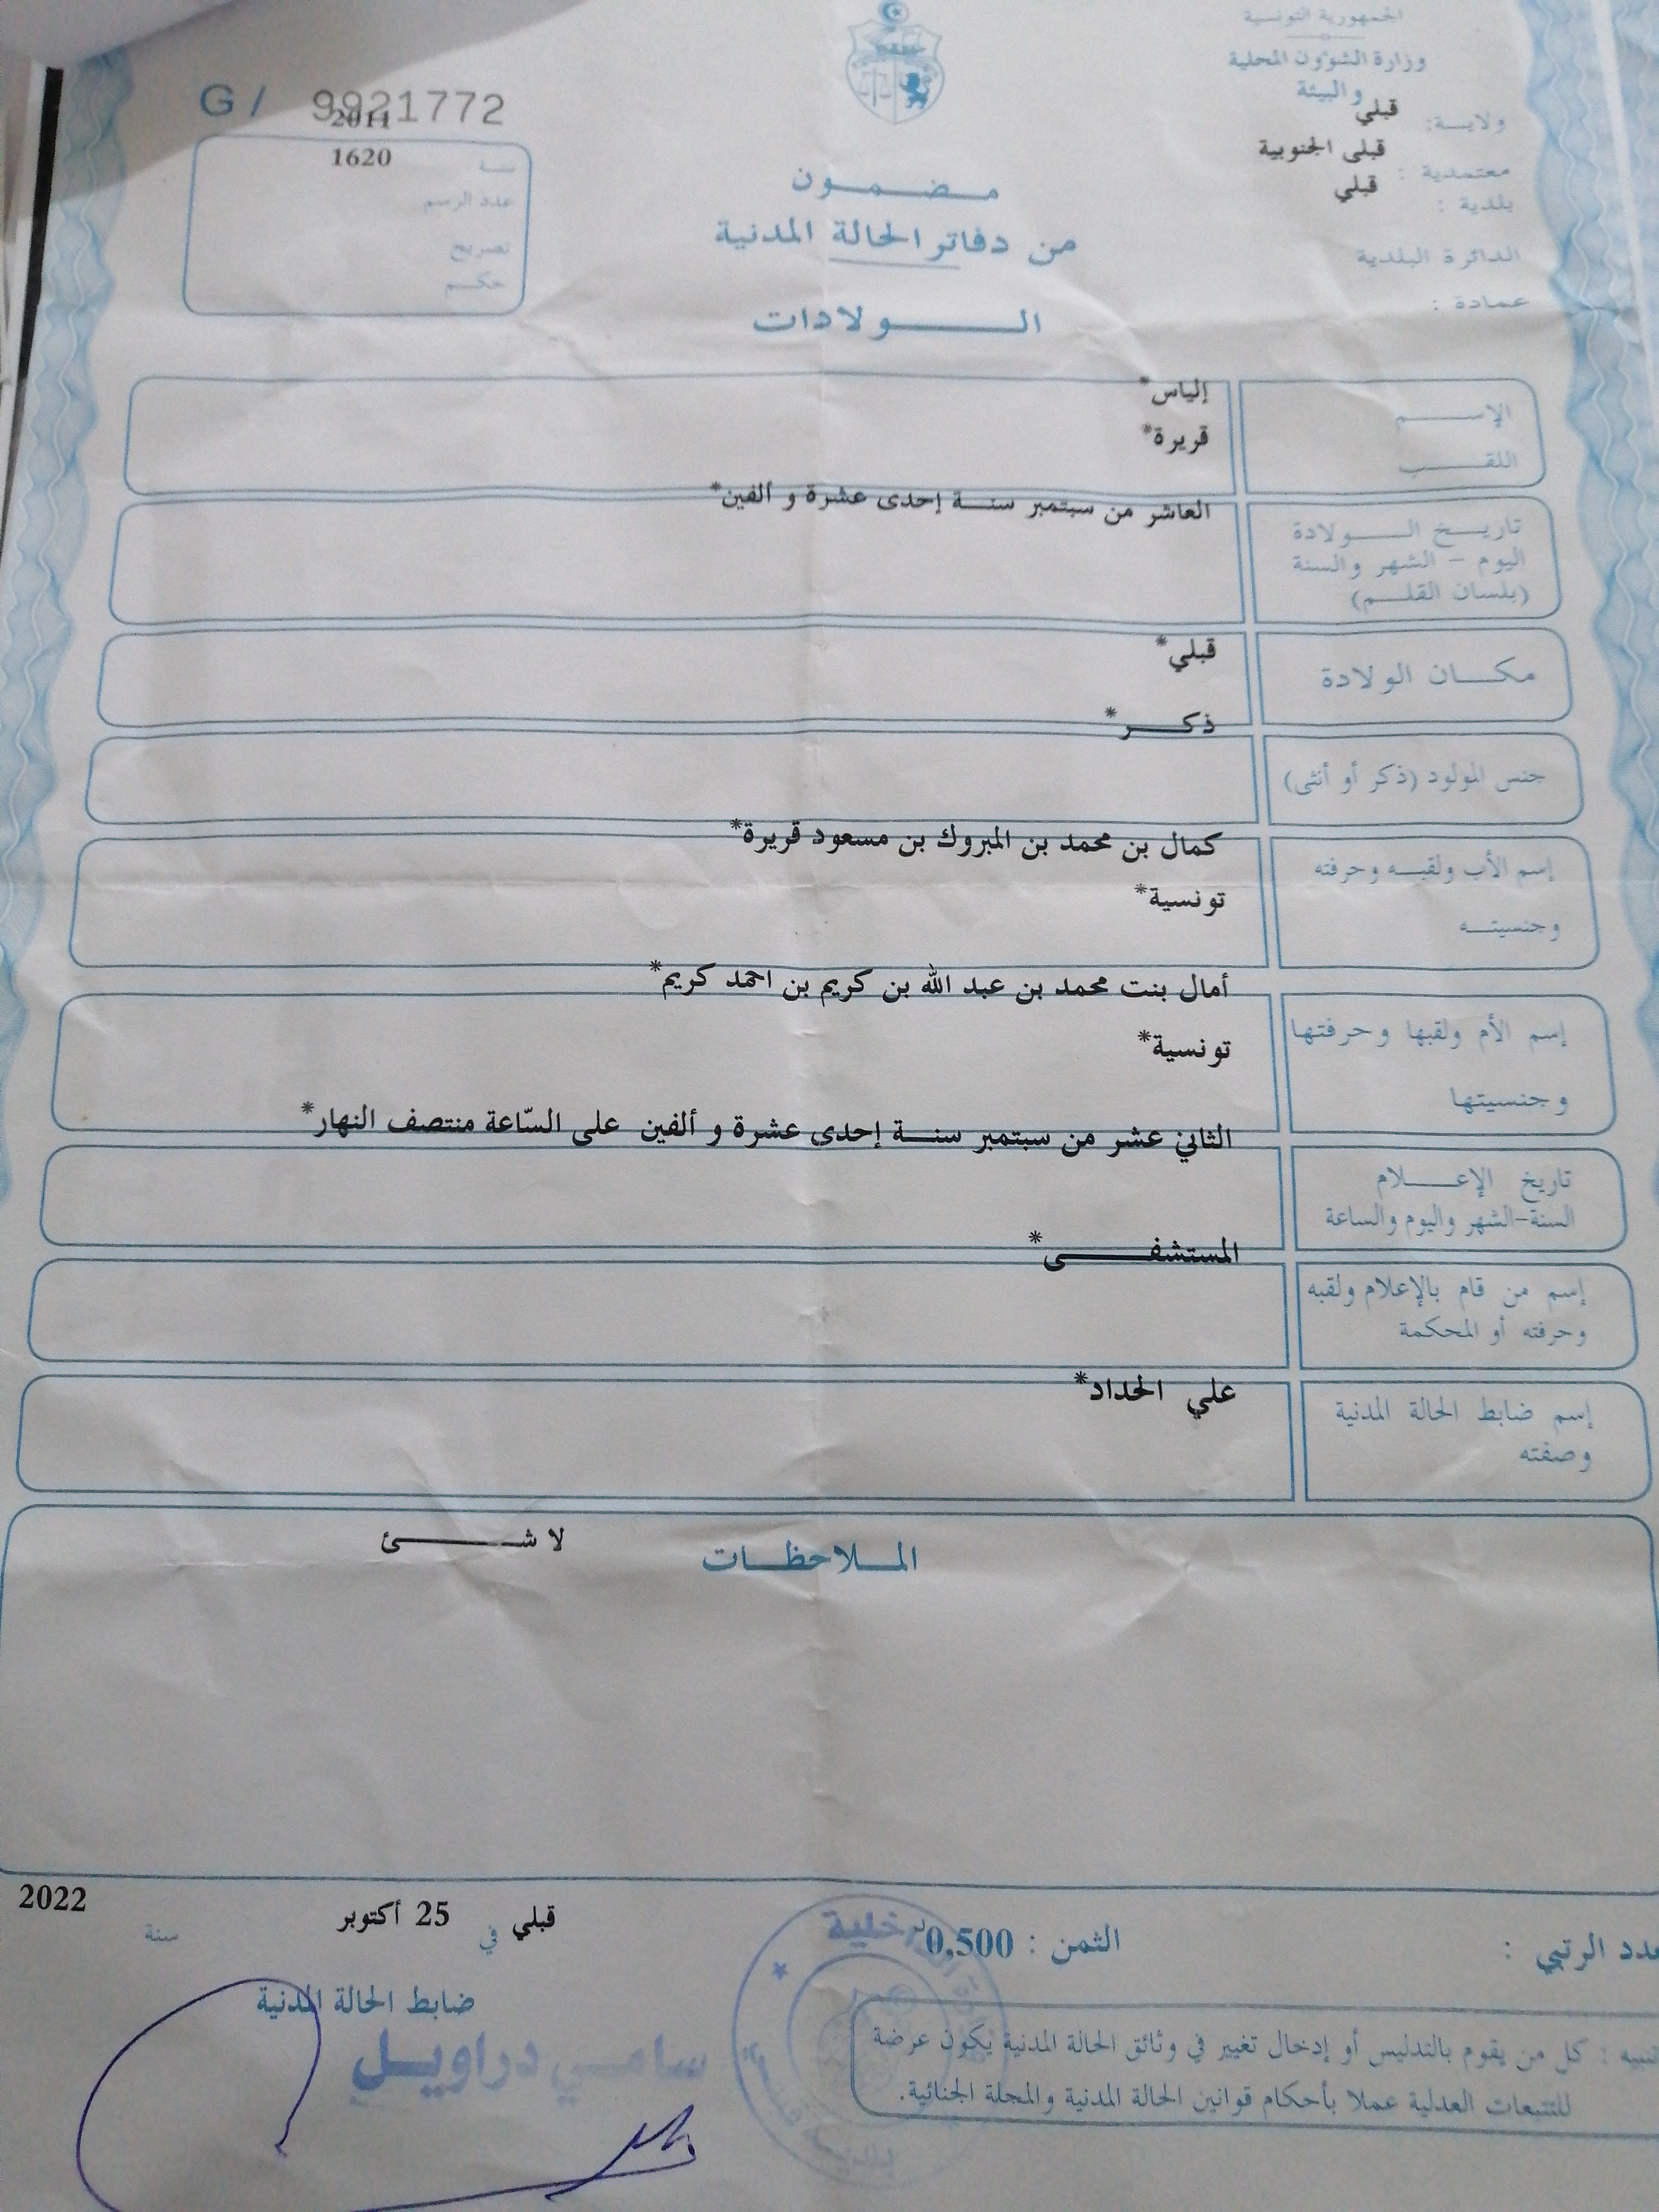 الجمهورية التونسية
وزارة الشؤون المحلية
والبيئة
ولاية: قبلي
معتمدية : قبلي الجنوبية
بلدية : قبلي
الدائرة البلدية
عمادة :
G / 9921772
2011
سنة
1620
عدد الرسم
تصريح
حكم
مضمون
من دفاتر الحالة المدنية
الولادات
الإسم
إلياس*
اللقب
قريرة*
تاريخ الولادة
اليوم - الشهر والسنة
(بلسان القلم)
العاشر من سبتمبر سنة إحدى عشرة و ألفين*
مكان الولادة
قبلي*
جنس المولود (ذكر أو أنثى)
ذكر*
إسم الأب ولقبه وحرفته
وجنسيته
كمال بن محمد بن المبروك بن مسعود قريرة*
تونسية*
إسم الأم ولقبها وحرفتها
وجنسيتها
أمال بنت محمد بن عبد الله بن كريم بن احمد كريم*
تونسية*
تاريخ الإعلام
السنة-الشهر واليوم والساعة
الثاني عشر من سبتمبر سنة إحدى عشرة و ألفين على السّاعة منتصف النهار*
إسم من قام بالإعلام ولقبه
وحرفته أو المحكمة
المستشفى*
إسم ضابط الحالة المدنية
وصفته
علي الحداد*
الملاحظات
لا شئ
الرتبي :
الثمن : 0,500
قبلي في 25 أكتوبر سنة 2022
ضابط الحالة المدنية
سامي دراويل
تنبيه : كل من يقوم بالتدليس أو إدخال تغيير في وثائق الحالة المدنية يكون عرضة
للتتبعات العدلية عملا بأحكام قوانين الحالة المدنية والمجلة الجنائية.